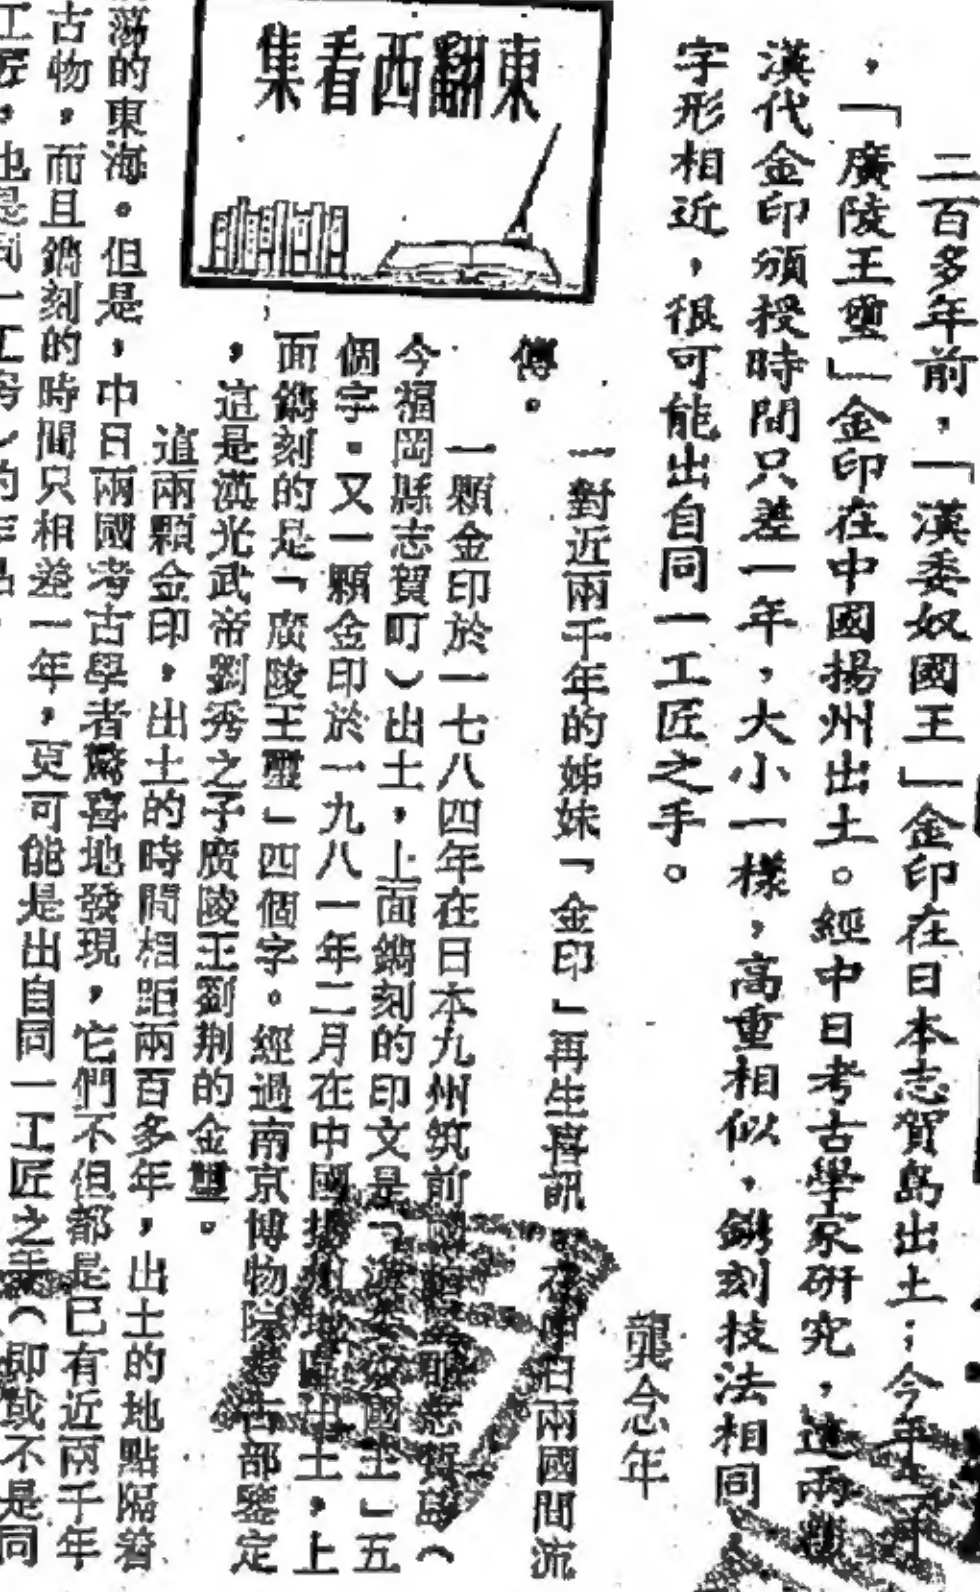 二百多年前，「漢委奴國王」金印在日本志賀島出土；今年二
，「廣陵王璽」金印在中國揚州出土。經中日考古學家研究，這兩顆
漢代金印頒授時間只差一年，大小一樣，高重相似，鐫刻技法相同，
字形相近，很可能出自同一工匠之手。
龔念年
東翻西看集
一對近兩千年的姊妹「金印」再生喜訊，在中日兩國間流
傳。
一顆金印於一七八四年在日本九州筑前國志賀島（
今福岡縣志賀町）出土，上面鐫刻的印文是「漢委奴國王」五
個字。又一顆金印於一九八一年二月在中國揚州地區出土，上
面鐫刻的是「廣陵王璽」四個字。經過南京博物院考古部鑒定
，這是漢光武帝劉秀之子廣陵王劉荆的金璽。
這兩顆金印，出土的時間相距兩百多年，出土的地點隔着
的東海。但是，中日兩國考古學者驚喜地發現，它們不但都是已有近兩千年
古物，而且鐫刻的時間只相差一年，更可能是出自同一工匠之手（即或不是同
工匠，也是同一工房）的作品